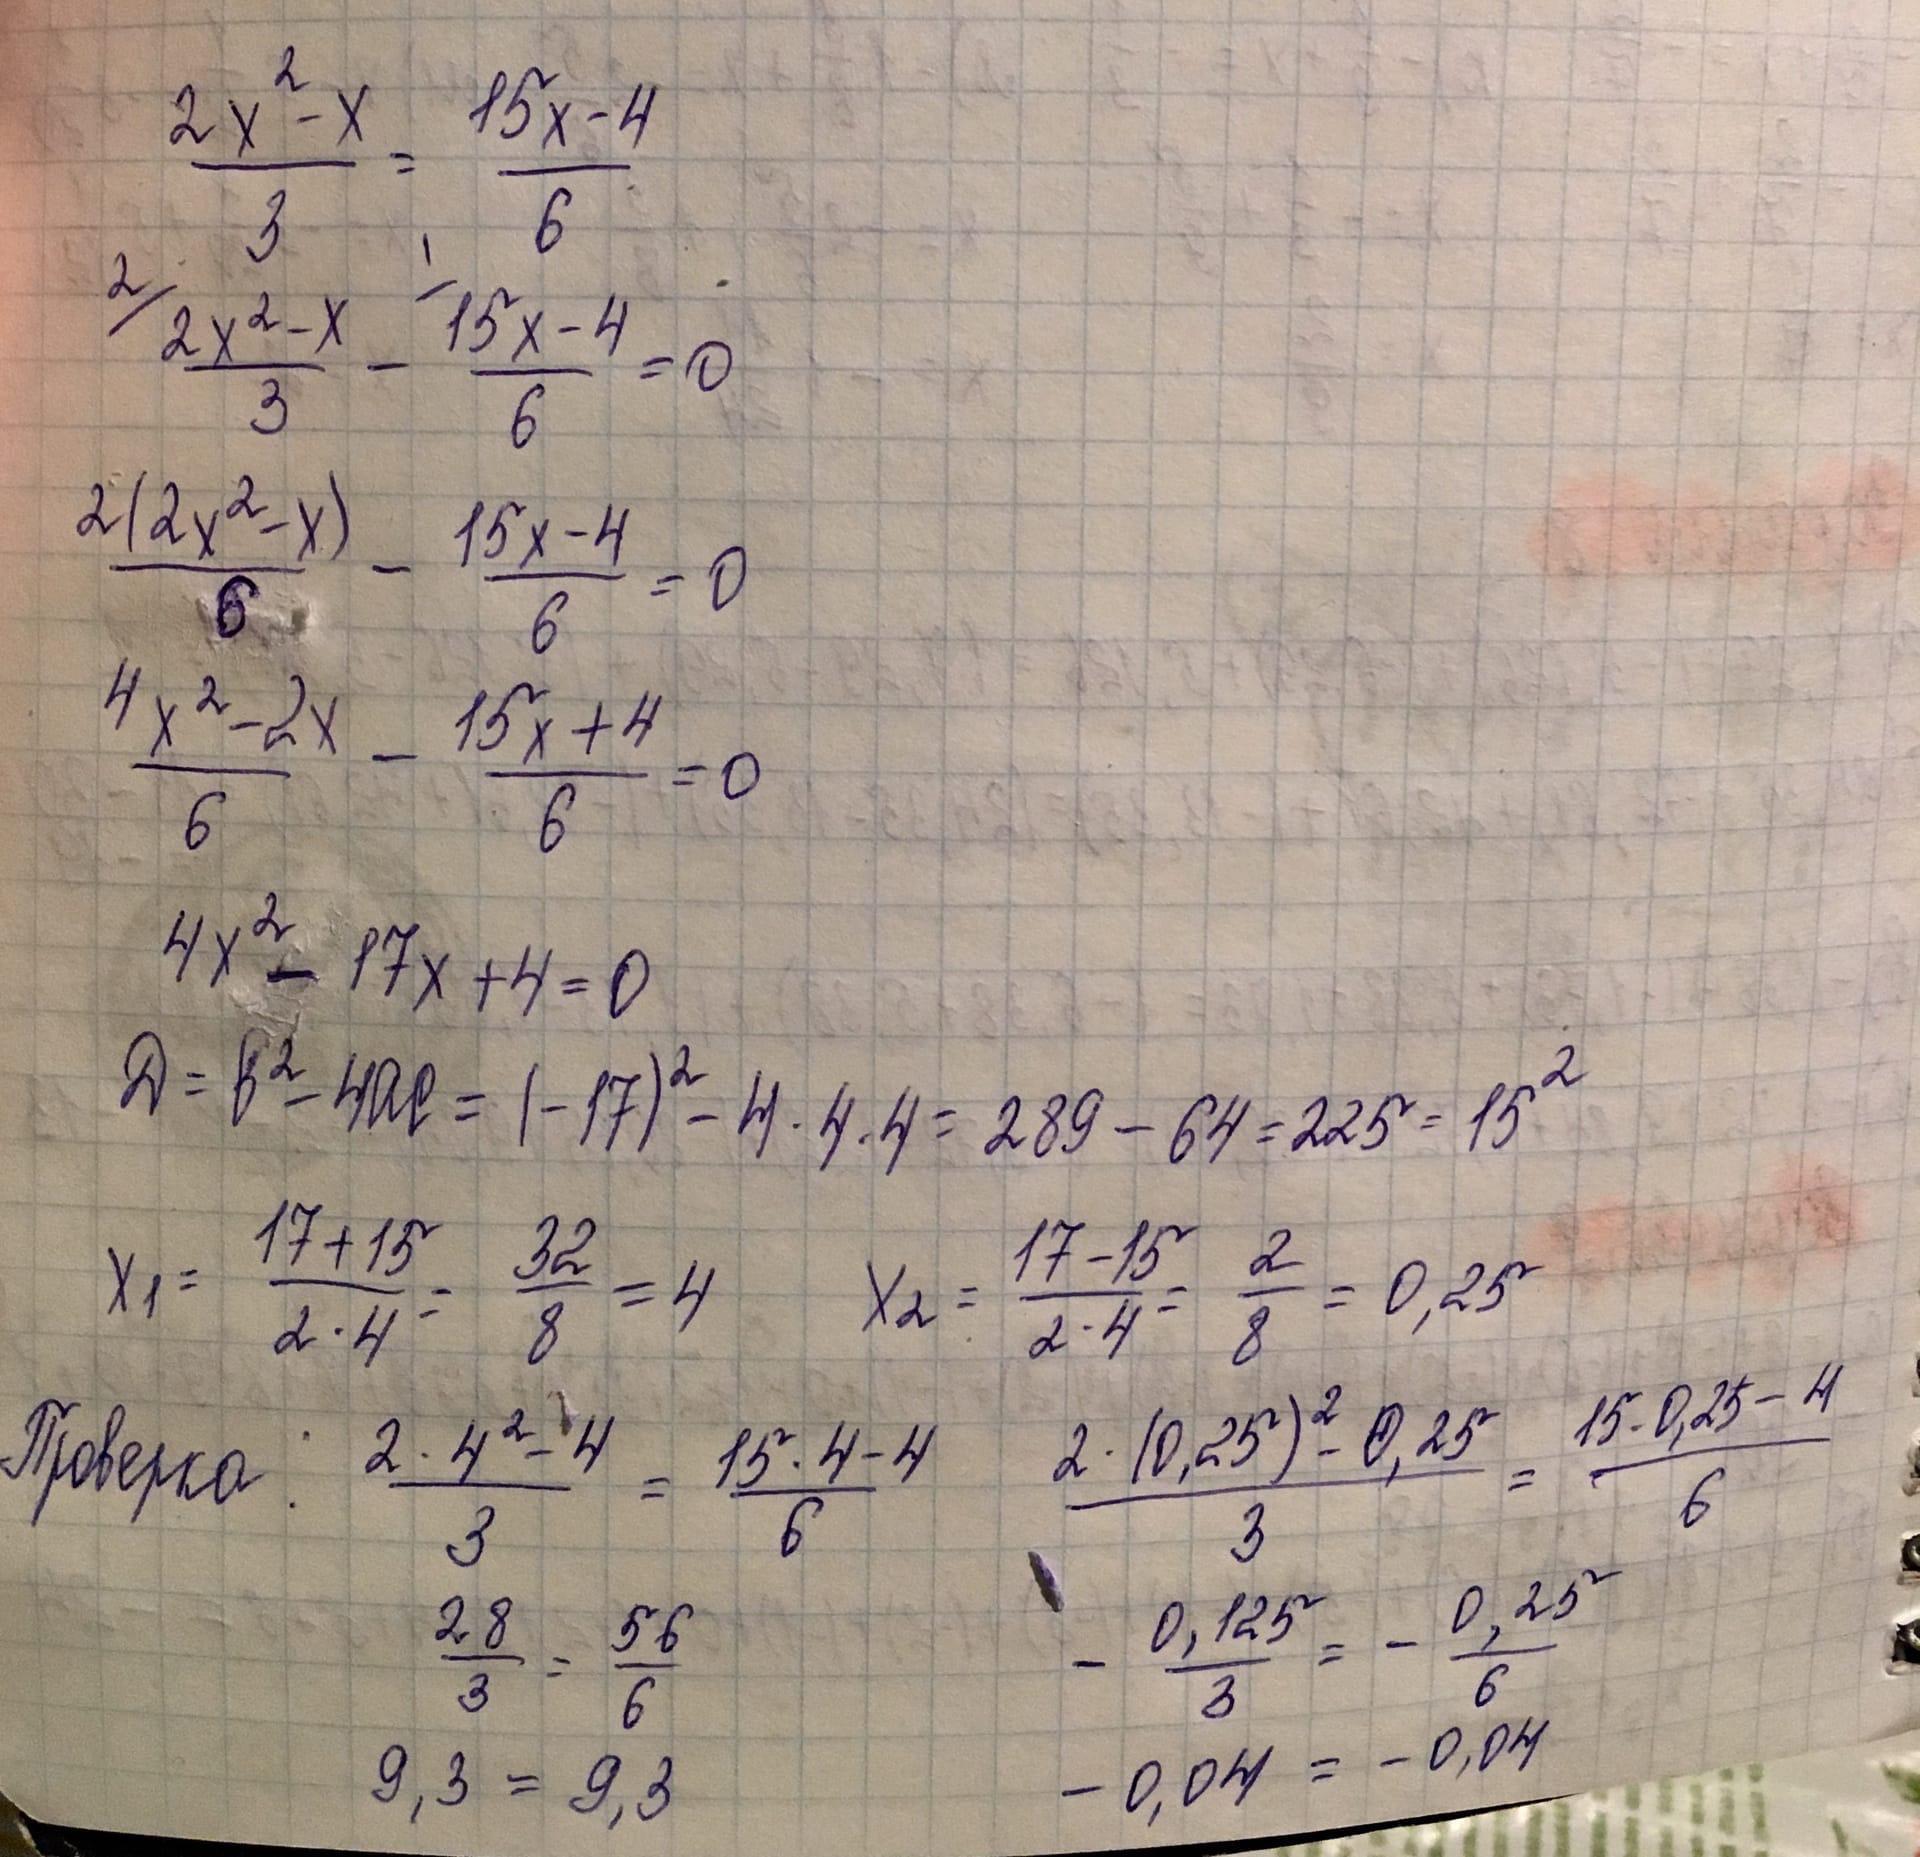 (2x² - x)/3 = (15x - 4)/6
2/ (2x² - x)/3 - 1/ (15x - 4)/6 = 0
2(2x² - x)/6 - (15x - 4)/6 = 0
(4x² - 2x)/6 - (15x + 4)/6 = 0
4x² - 17x + 4 = 0
D = b² - 4ac = (-17)² - 4 · 4 · 4 = 289 - 64 = 225 = 15²
x₁ = (17 + 15)/(2 · 4) = 32/8 = 4 x₂ = (17 - 15)/(2 · 4) = 2/8 = 0,25
Проверка: (2 · 4² - 4)/3 = (15 · 4 - 4)/6 (2 · (0,25)² - 0,25)/3 = (15 · 0,25 - 4)/6
28/3 = 56/6 - 0,125/3 = - 0,25/6
9,3 = 9,3 - 0,04 = - 0,04